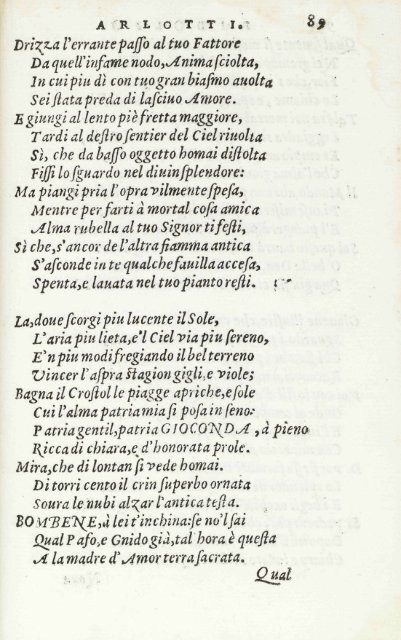 ARLOTTI. 89
Drizza l'errante paſſo al tuo Fattore
Da quell'infame nodo, Anima ſciolta,
In cui piu dì con tuo gran biaſmo auolta
Sei ſtata preda di laſciuo Amore.
E giungi al lento piè fretta maggiore,
Tardi al deſtro ſentier del Ciel riuolta
Sì, che da baſſo oggetto homai diſtolta
Fiſſi lo ſguardo nel diuin ſplendore:
Ma piangi pria l'opra vilmente ſpeſa,
Mentre per farti à mortal coſa amica
Alma rubella al tuo Signor ti feſti,
Sì che, s'ancor de l'altra fiamma antica
S'aſconde in te qualche fauilla acceſa,
Spenta, e lauata nel tuo pianto reſti.
La, doue ſcorgi piu lucente il Sole,
L'aria piu lieta, e'l Ciel via piu ſereno,
E'n piu modi fregiando il bel terreno
Vincer l'aſpra Stagion gigli, e viole;
Bagna il Croſtol le piagge apriche, e ſole
Cui l'alma patria mia ſi poſa in ſeno:
Patria gentil, patria GIOCONDA, à pieno
Ricca di chiara, e d'honorata prole.
Mira, che di lontan ſi vede homai.
Di torri cento il crin ſuperbo ornata
Soura le nubi alzar l'antica teſta.
BOMBENE, à lei t'inchina: ſe no'l ſai
Qual Pafo, e Gnido già, tal hora è queſta
A la madre d'Amor terra ſacrata.
Qual